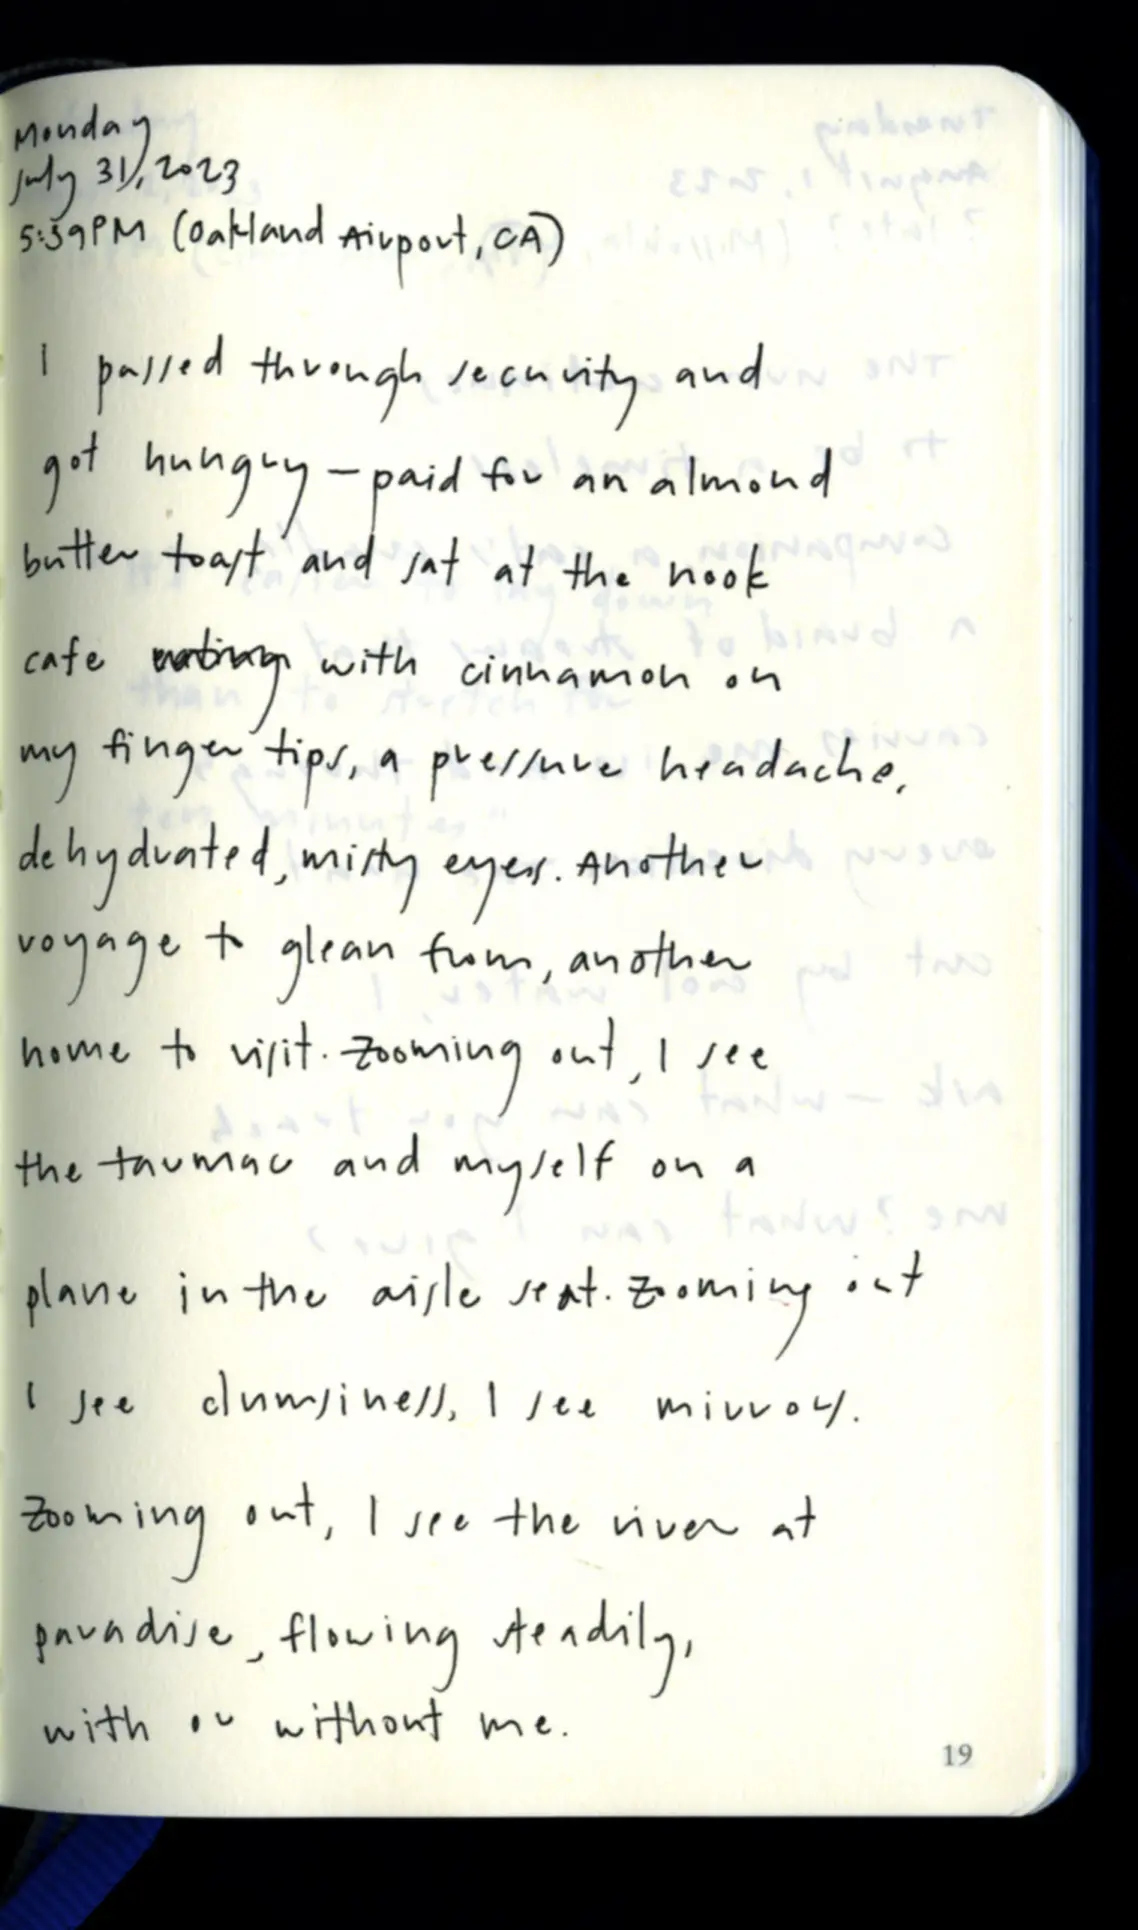 Monday
July 31, 2023
5:39PM (Oakland Airport, CA)
I passed through security and
got hungry – paid for an almond
butter toast and sat at the nook
cafe with cinnamon on
my finger tips, a pressure headache,
dehydrated, misty eyes. Another
voyage to glean from, another
home to visit. Zooming out, I see
the tarmac and myself on a
plane in the aisle seat. Zooming out
I see clumsiness, I see mirrors.
Zooming out, I see the river at
paradise, flowing steadily,
with or without me.
19